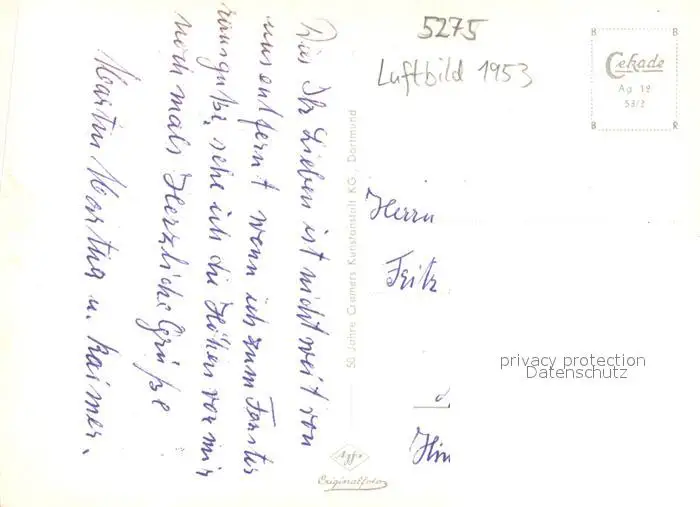 5275
Luftbild 1953
B B
Cekade
Ag 12
53/2
B R
Dies Ihr Lieben ist nicht weit von
uns entfernt wenn ich zum Fenster
rausgucke, sehe ich die Höhen vor mir
noch mals Herzliche Grüße
Martin Martha u. Raimer.
50 Jahre Cramers Kunstanstalt KG., Dortmund
Herrn
Fritz
Hin
privacy protection
Datenschutz
Agfa
Originalfoto